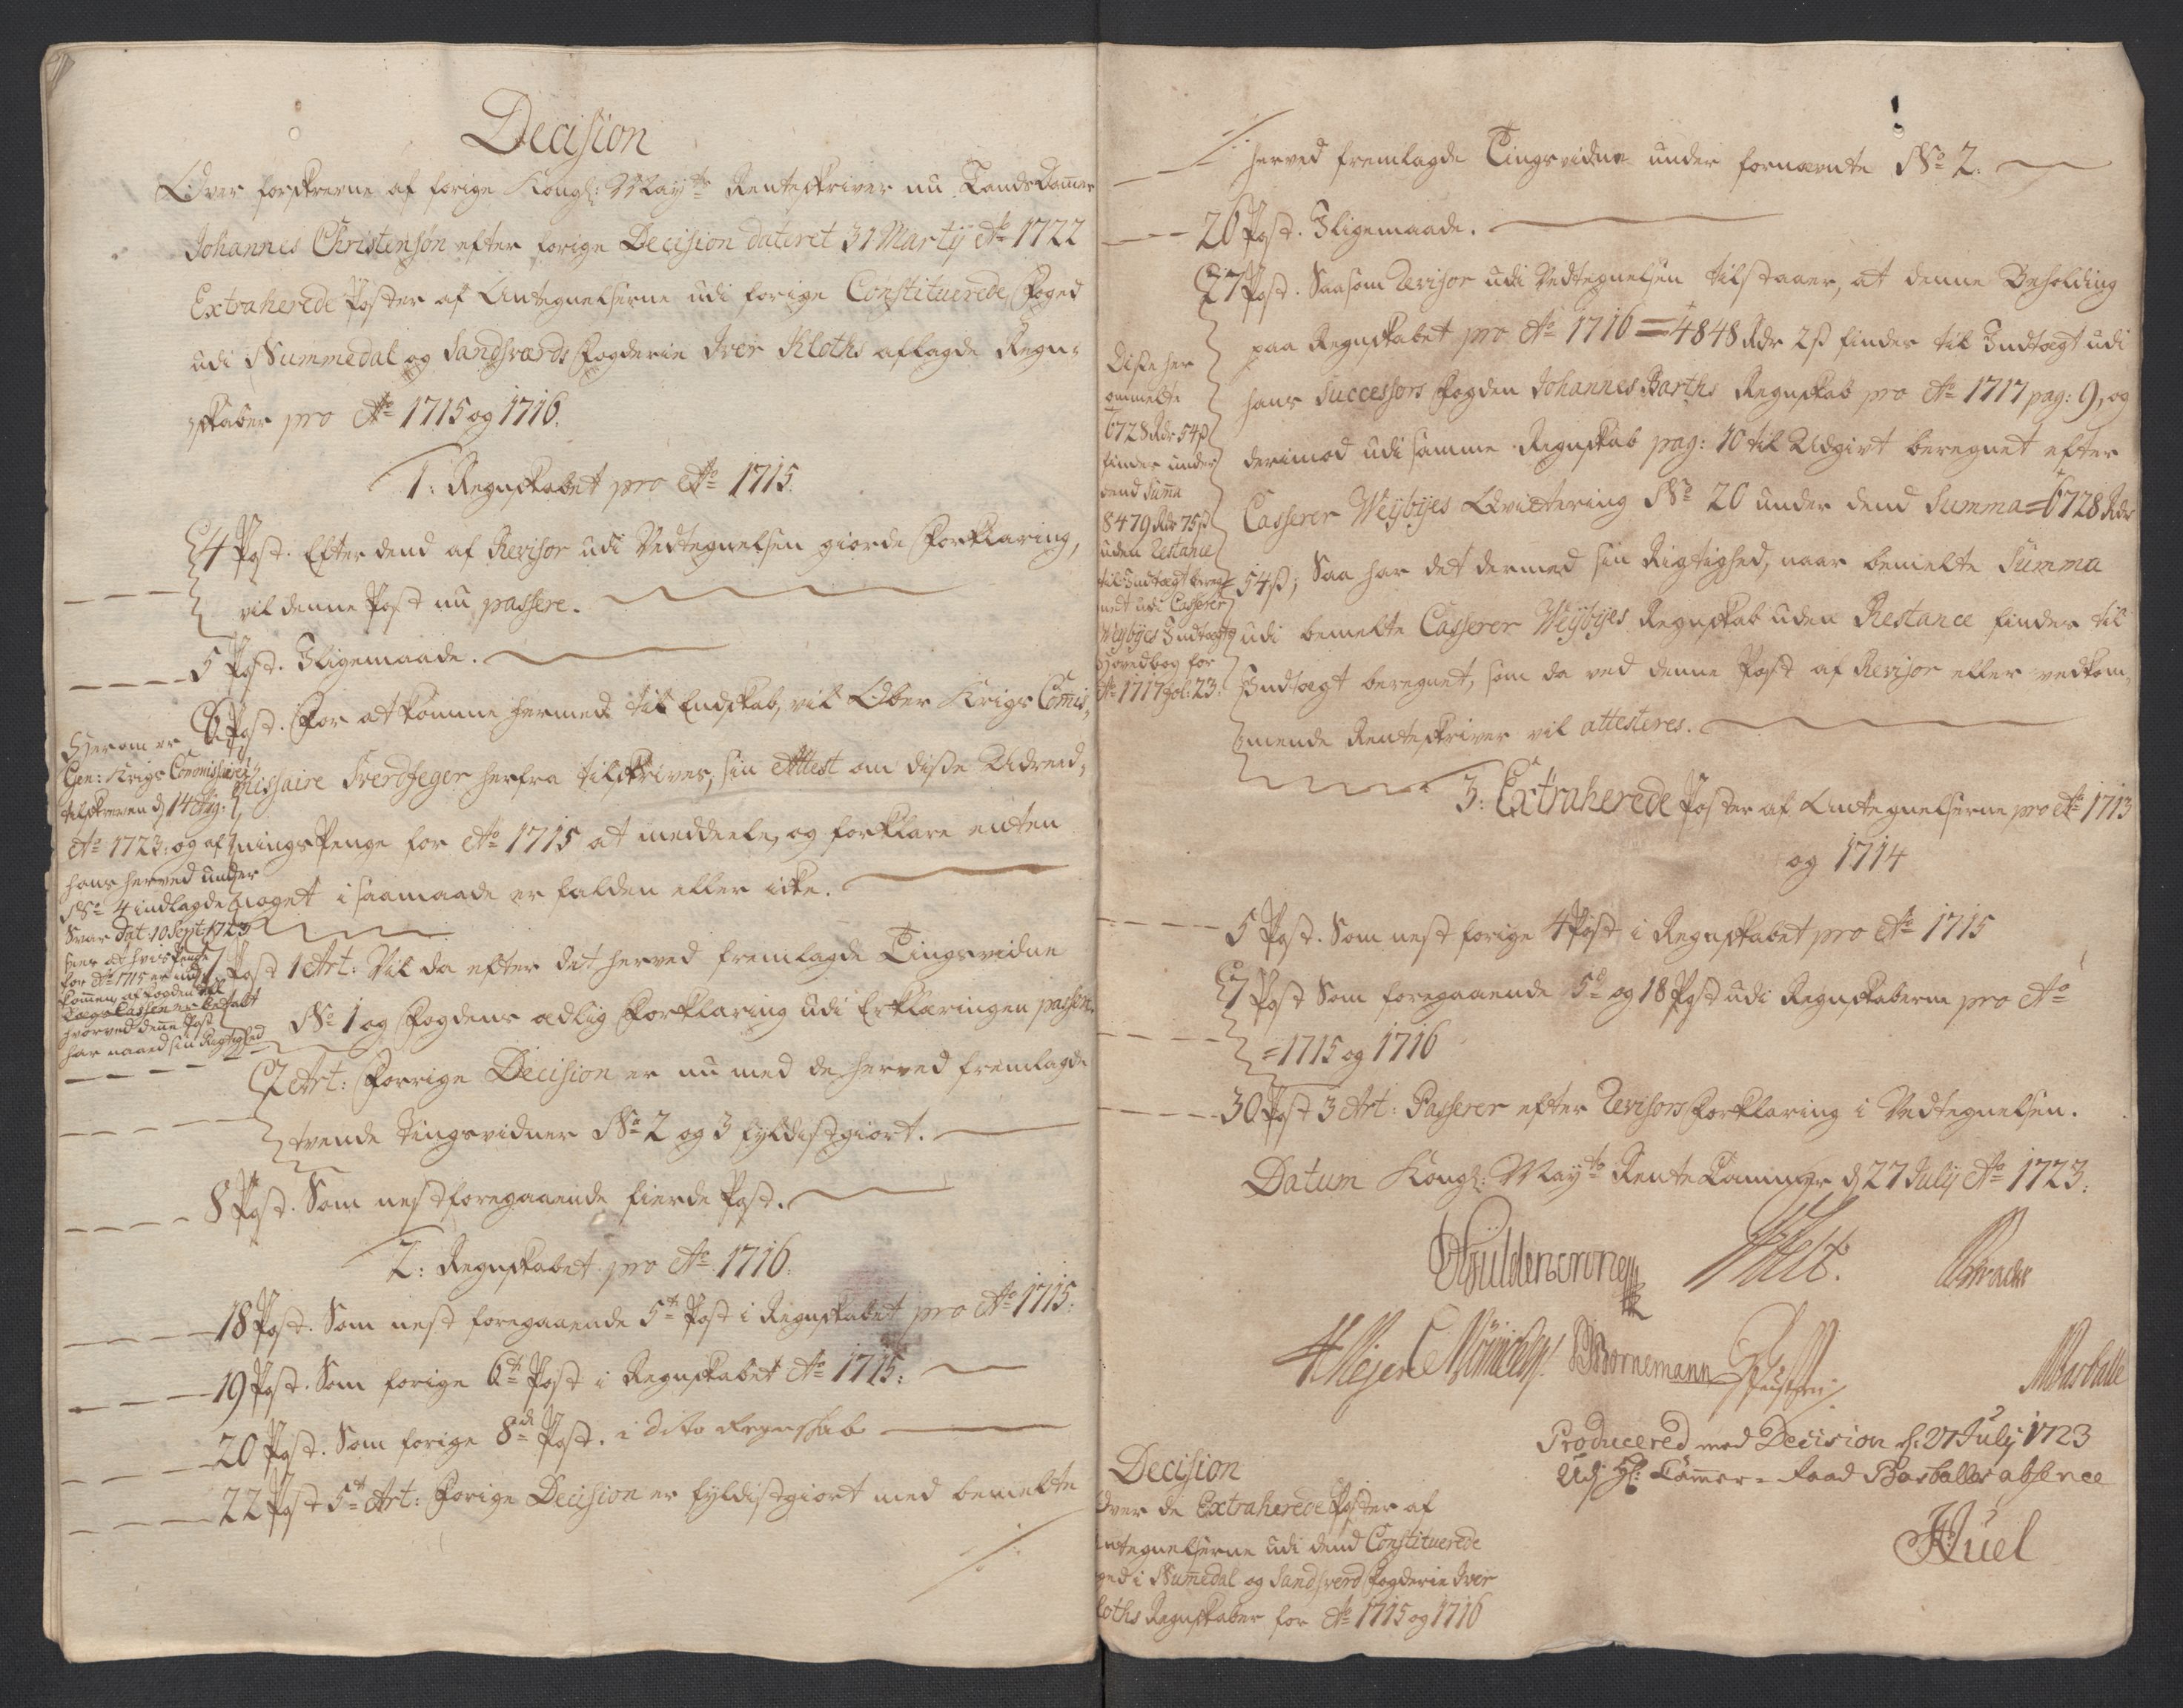 Decision
Over forskrevne af forige Kongl: May:ts Renteskriver nu Landsdommer
Johannes Christensøn efter forige Decision dateret 31 Martij Ao 1722
Extraherede Poster af Antegnelserne udi forige Constituerede Foged
udi Nummedal og Sandsverds Fogderie Iver Kloths aflagde Regn-
skaber pro Ao 1715 og 1716.
1: Regnskabet pro Ao 1715.
4 Post. Efter dend af Revisor udi Vedtegnelsen giorde Forklaring,
vil denne Post nu passere.
5 Post. Ligemaade.
6 Post. For at komme hermed til Endskab, vil Ober Krigs Com̄is-
missaire Sverdfeger herfra tilskrives, sin Attest om disse Udreed-
nings Penge for Ao 1715 at meddeele, og forklare enten
noget i saamaade er falden eller icke.
Herom er
Gen: Krigs Commissairen
tilskreven d 14 Aug:
Ao 1723: og af
hans herved under
No 4 indlagde
Svar dat: 10 Sept: 1723
sees at hvis Penge
for Ao 1715 er ind
kommen af Fogden till
Cassen er betalt
hvorved denne Post
har naaed sin Rigtighed
7 Post 1 Art: Vil da efter det herved fremlagde Tingsvidne
No 1 og Fogdens ædlig Forklaring udi Erklæringen passere.
2 Art: Forrige Decision er nu med de herved fremlagde
tvende Tingsvidner No 2 og 3 fyldistgiort.
8 Post. Som nest foregaaende fierde Post.
2: Regnskabet pro Ao 1716.
18 Post. Som nest foregaaende 5te Post i Regnskabet pro Ao 1715:
19 Post. Som forige 6te Post i Regnskabet Ao 1715:
20 Post. Som forige 8de Post. i dito Regnskab
22 Post 5te Art: Forige Decision er fyldistgiort med bemelte
./.
./. herved fremlagde Tingsvidne under fornævnte No 2.
26 Post. Ligemaade.
27 Post. Saasom Revisor udi Vedtegnelsen tilstaaer, at denne Beholding
paa Regnskabet pro Ao 1716 = 4848 Rdr 2 ß findes til Indtægt udi
hans Successors Fogden Johannes Barths Regnskab pro Ao 1717 pag: 9, og
derimod udi samme Regnskab pag: 10 til Udgivt beregnet efter
Casserer Weybyes Qvittering No 20 under dend Summa = 6728 Rdr
54 ß; Saa har det dermed sin Rigtighed, naar bemelte Summa
udi bemelte Casserer Weybyes Regnskab uden Restance findes til
Indtægt beregnet, som da ved denne Post af Revisor eller vedkom-
mende Renteskriver vil attesteres.
Disse her
ommelte
6728 Rdr 54 ß
findes under
dend Sum̄a
8479 Rdr 75 ß
uden Restance
til Indtægt bereg-
net udi Casserer
Weybyes Indtægtz
Hovedbog for
Ao 1717 fol: 23:
3: Extraherede Poster af Antegnelserne pro Ao 1713
og 1714
5 Post. Som nest forige 4 Post i Regnskabet pro Ao 1715
7 Post Som foregaaende 5te og 18 Post udi Regnskaberne pro Ao
= 1715 og 1716
30 Post 3 Art: Passerer efter Revisors Forklaring i Vedtegnelsen.
Datum Kongl: May:ts Rente Cammer d 27 July Ao 1723.
Güldencrone
H Meyer
BBornemann
Basballe
Producered med Decision d: 27 July 1723
Udj Hr: Cammer-Raad Basballes absence
Juel
Decision
Over de Extraherede Poster af
Antegnelserne udi dend Constituerede
Foged i Num̄edal og Sandsverd Fogderie Iver
Kloths Regnskaber for Ao 1715 og 1716